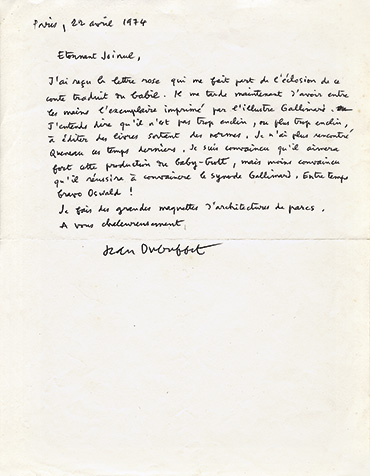 Paris, 22 avril 1974
Etonnant Joinul,
J'ai reçu la lettre rose qui me fait part de l'éclosion de ce
conte traduit du babil. Il me tarde maintenant d'avoir entre
les mains l'exemplaire imprimé par l'illustre Gallimard.
J'entends dire qu'il n'est pas trop enclin, ou plus trop enclin,
à éditer des livres sortant des normes. Je n'ai plus rencontré
Queneau ces temps derniers. Je suis convaincu qu'il aimera
fort cette production du Baby-Trott, mais moins convaincu
qu'il réussira à convaincre le synode Gallimard. Entre temps
bravo Oswald !
Je fais des grandes maquettes d'architectures de parcs.
A vous chaleureusement,
Jean Dubuffet